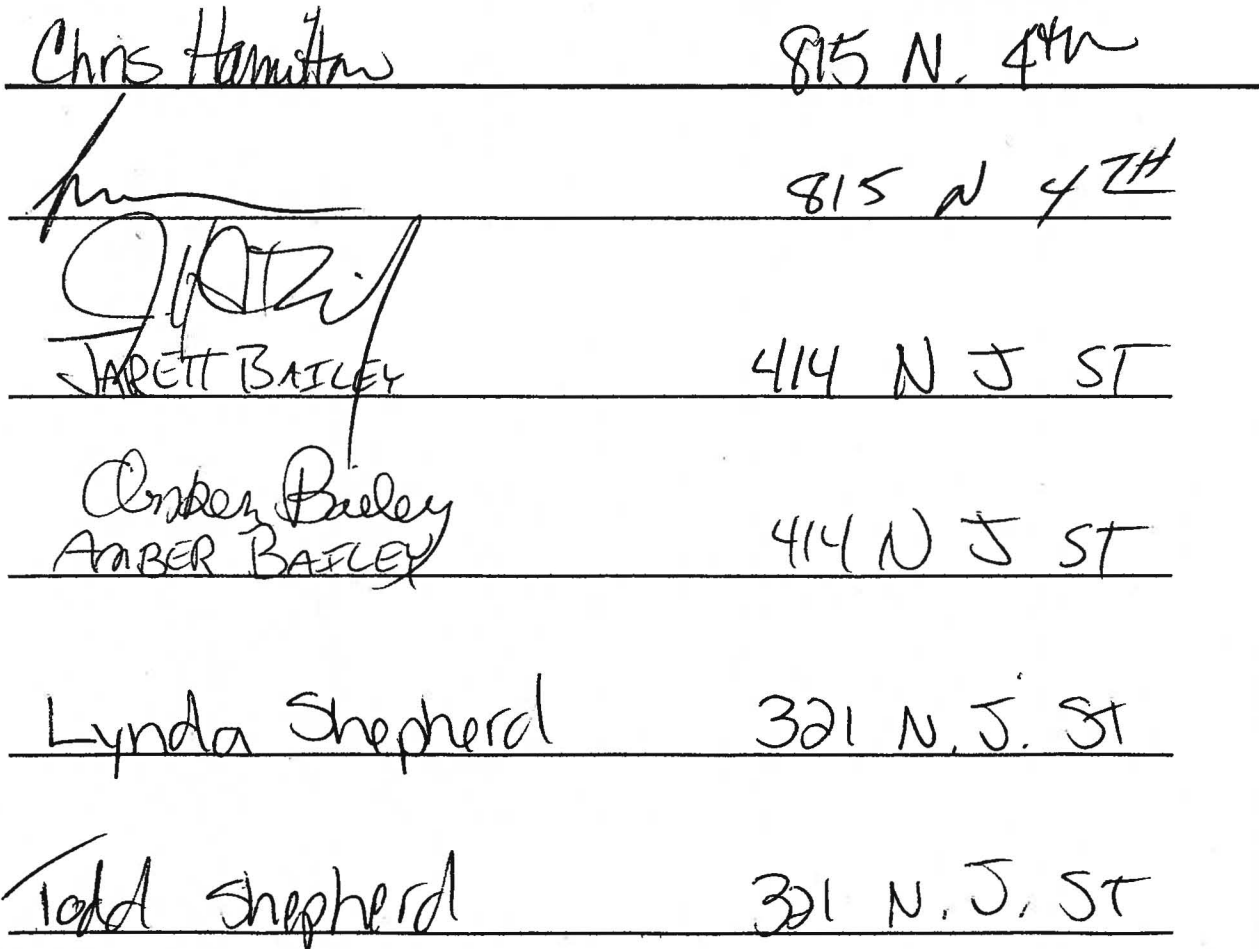 Chris Hamilton 815 N. 4th
815 N 4TH
JARETT BAILEY 414 N J ST
Amber Bailey
AMBER BAILEY 414 N J ST
Lynda Shepherd 321 N. J. St
Todd Shepherd 321 N. J. ST